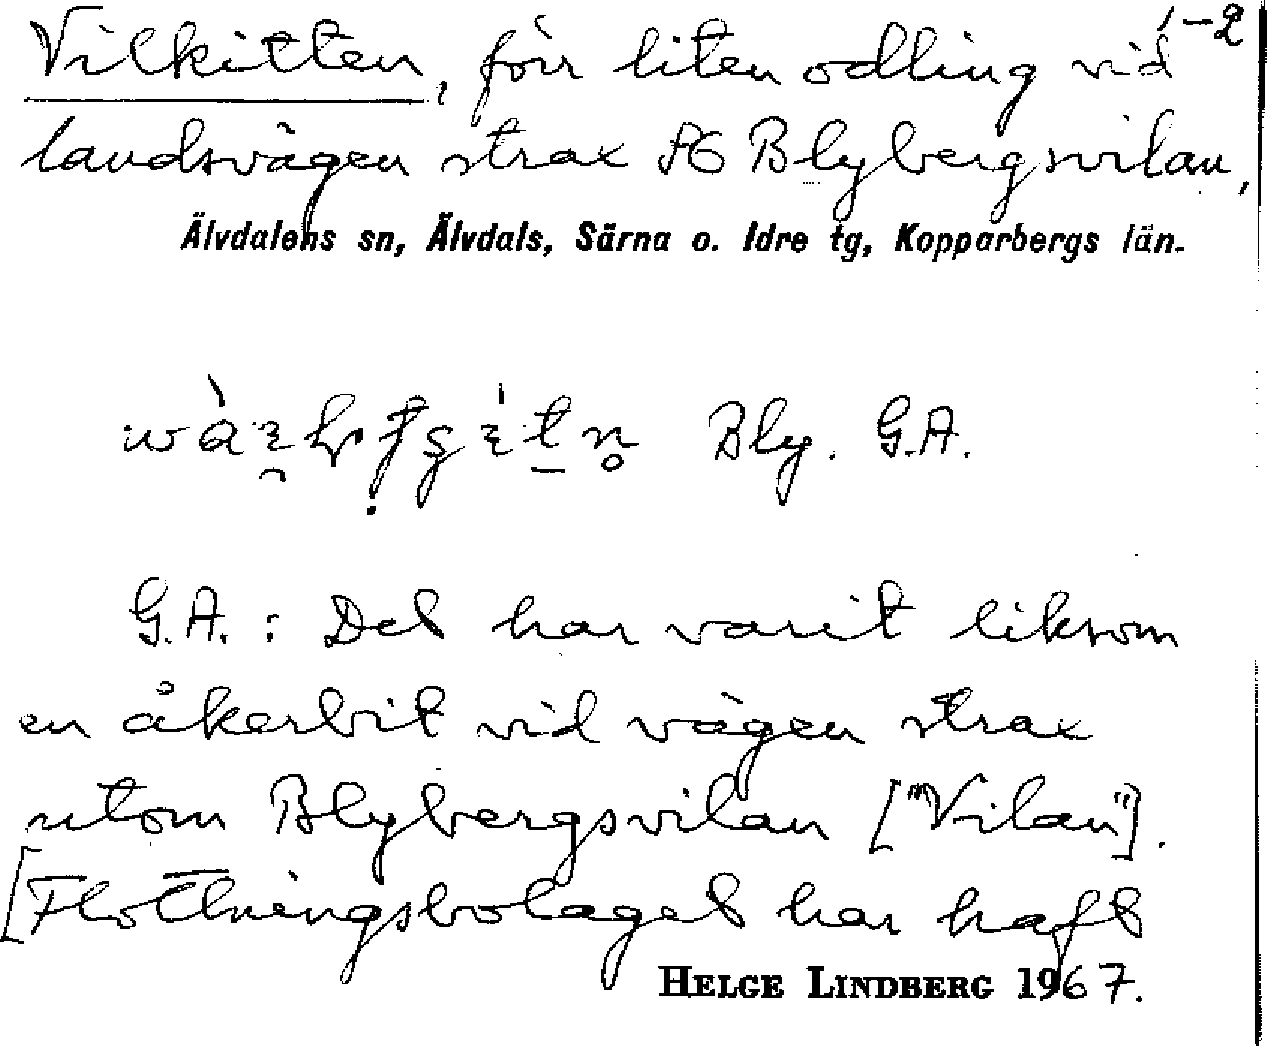 1-2
Vilkitten, förr liten odling vid
landsvägen strax Blybergsvilan,
Älvdalens sn, Älvdals, Särna o. Idre tg, Kopparbergs län.
Bly. G.A.
G.A.: Det har varit liksom
en åkerbit vid vägen strax
utom Blybergsvilan ["Vilan"].
[Flottningsbolaget har haft
HELGE LINDBERG 1967.